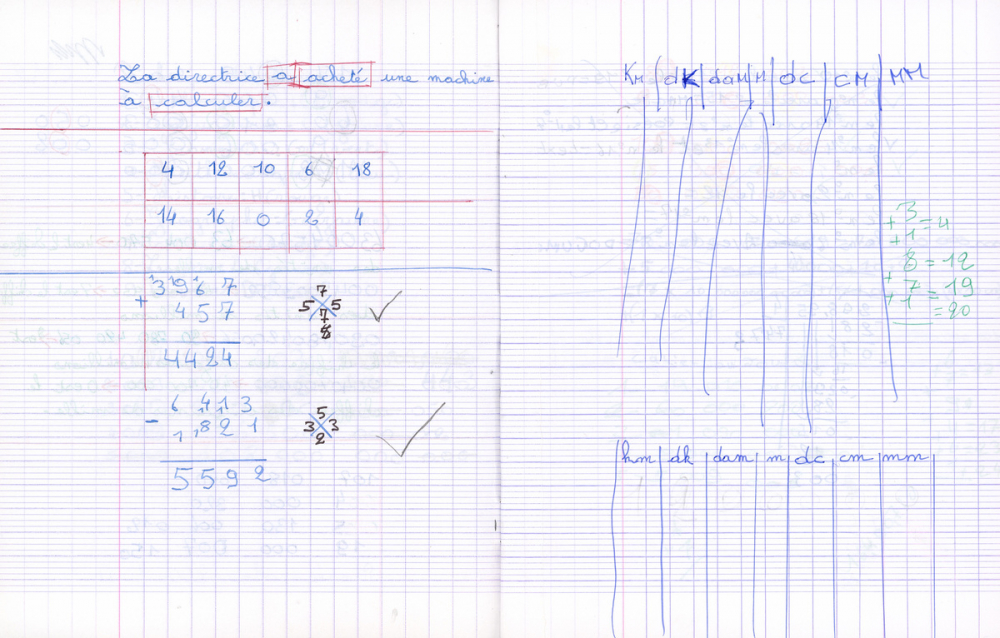 La directrice a acheté une machine
à calculer.
4 12 10 6 18
14 16 0 2 4
3967
+ 457
4424
7
5 5
7
8
6413
- 821
5592
5
3 3
2
KM dK daM M dC CM MM
+ 3
+ 1 = 4
8 = 12
+ 7 = 19
+ 1 = 20
hm dk dam m dc cm mm